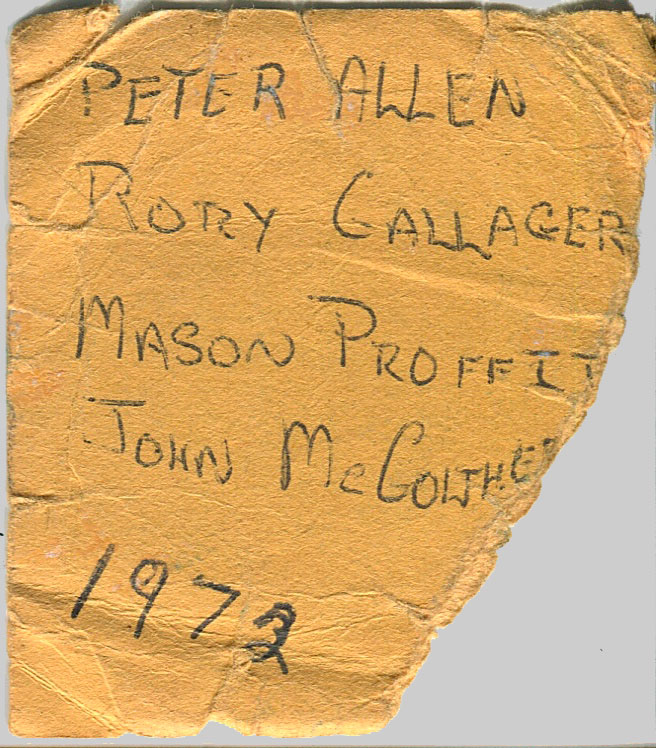 PETER ALLEN
RORY GALLAGER
MASON PROFFIT
JOHN
1973